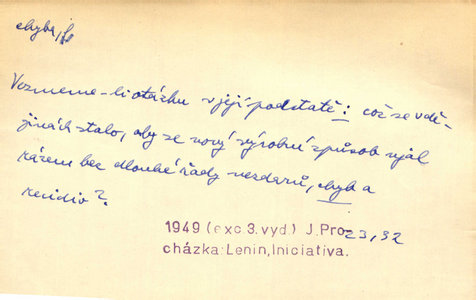 chyba, f.
Vezmeme-li otázku v její podstatě: což se v dě-
jinách stalo, aby se nový výrobní způsob ujal
rázem bez dlouhé řady nezdarů, chyb a
recidiv?
1949 (exc. 3. vyd.) J. Pro-
cházka: Lenin, Iniciativa.
23, 32